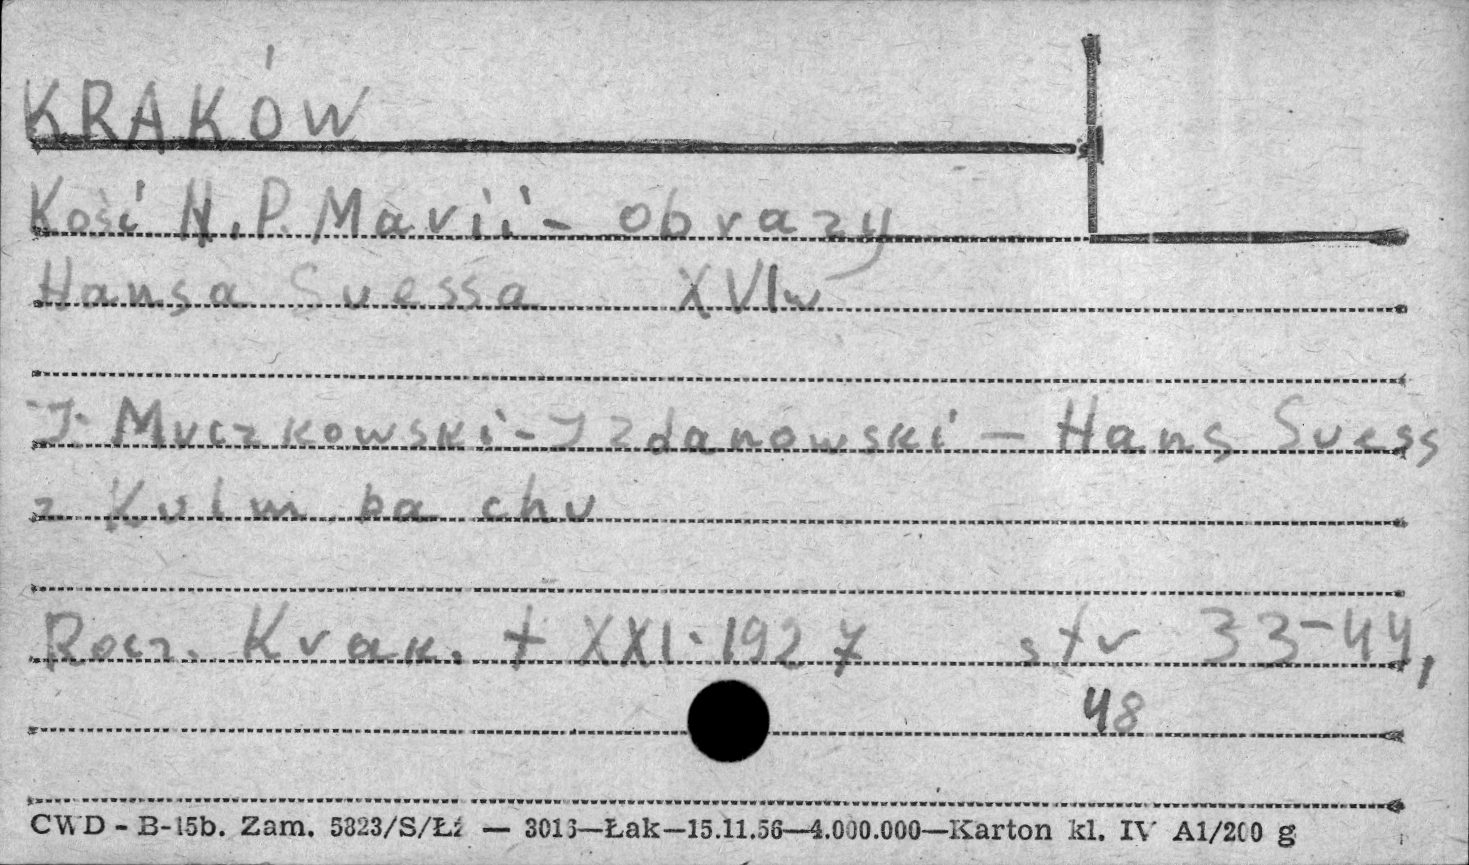 KRAKÓW
Kość N.P. Marii - obrazy
Hansa Suessa XVIw
J. Muczkowski - J Zdanowski - Hans Suess
z Kulmbachu
Rocz. Krak. t XXI. 1927 str 33-44,
48
CWD - B-15b. Zam. 5823/S/Łź — 3016—Łak—15.11.56—4.000.000—Karton kl. IV A1/200 g